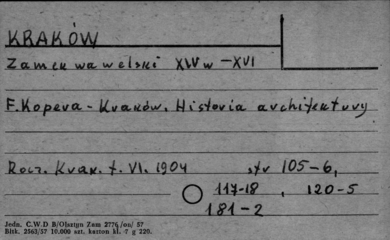 KRAKÓW
Zamek wawelski XIV w – XVI
F. Kopera - Kraków. Historia architektury
Rocz. Krak. t. VI. 1904 str 105-6,
117-18, 120-5
181-2
Jedn. C.W.D B/Olsztyn Zam 2776/oa/ 57
Blsk. 2563/57 10.000 szt. karton kl. 7 g 220.